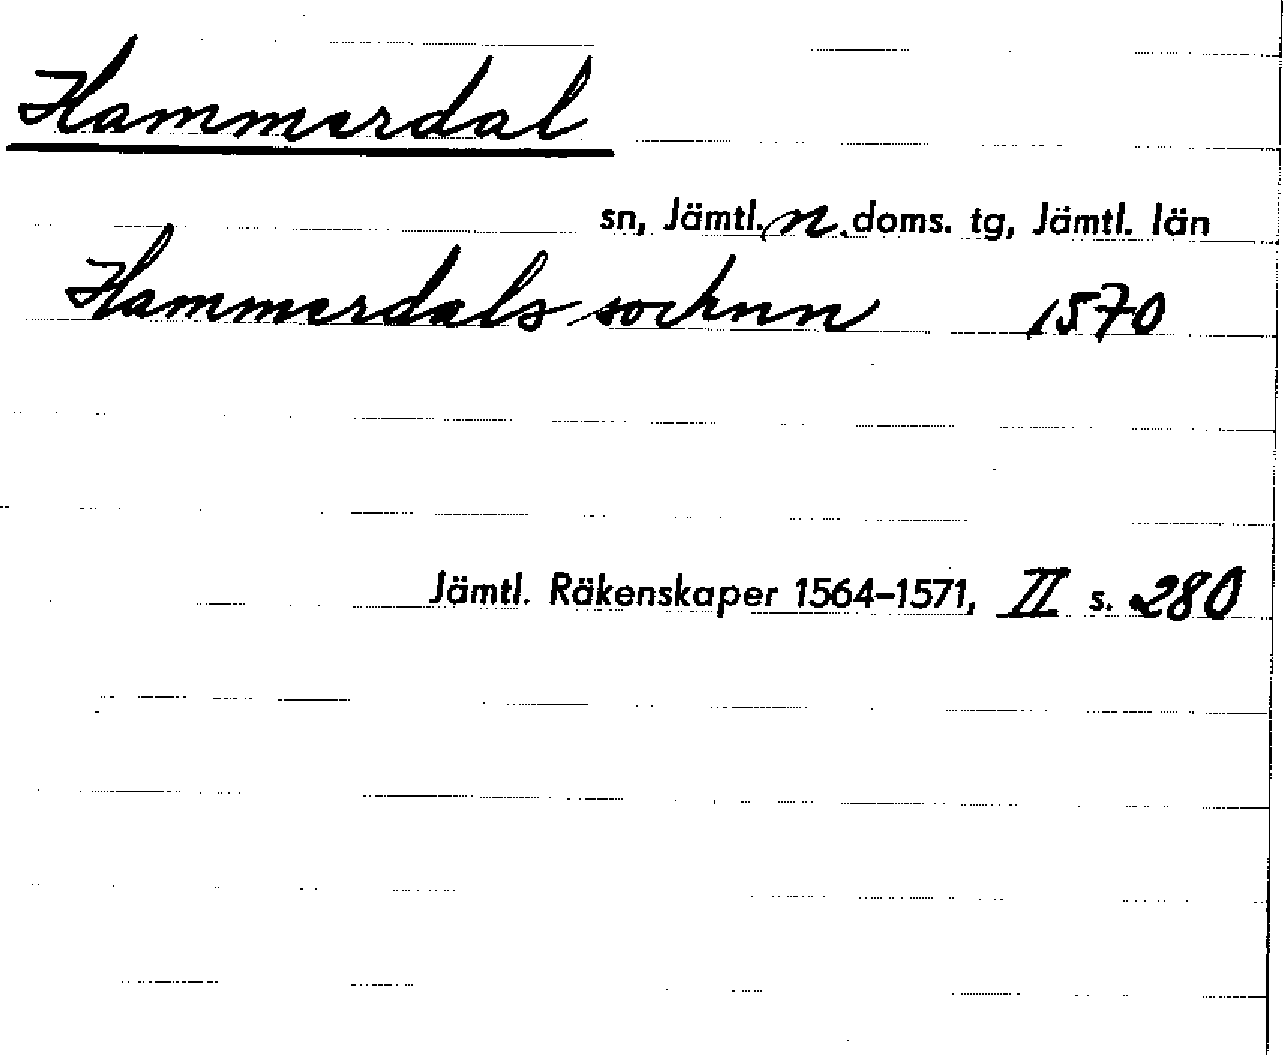 Hammerdal
sn, Jämtl. n. doms. tg, Jämtl. län
Hammerdals socknn 1570
Jämtl. Räkenskaper 1564-1571, II s. 280